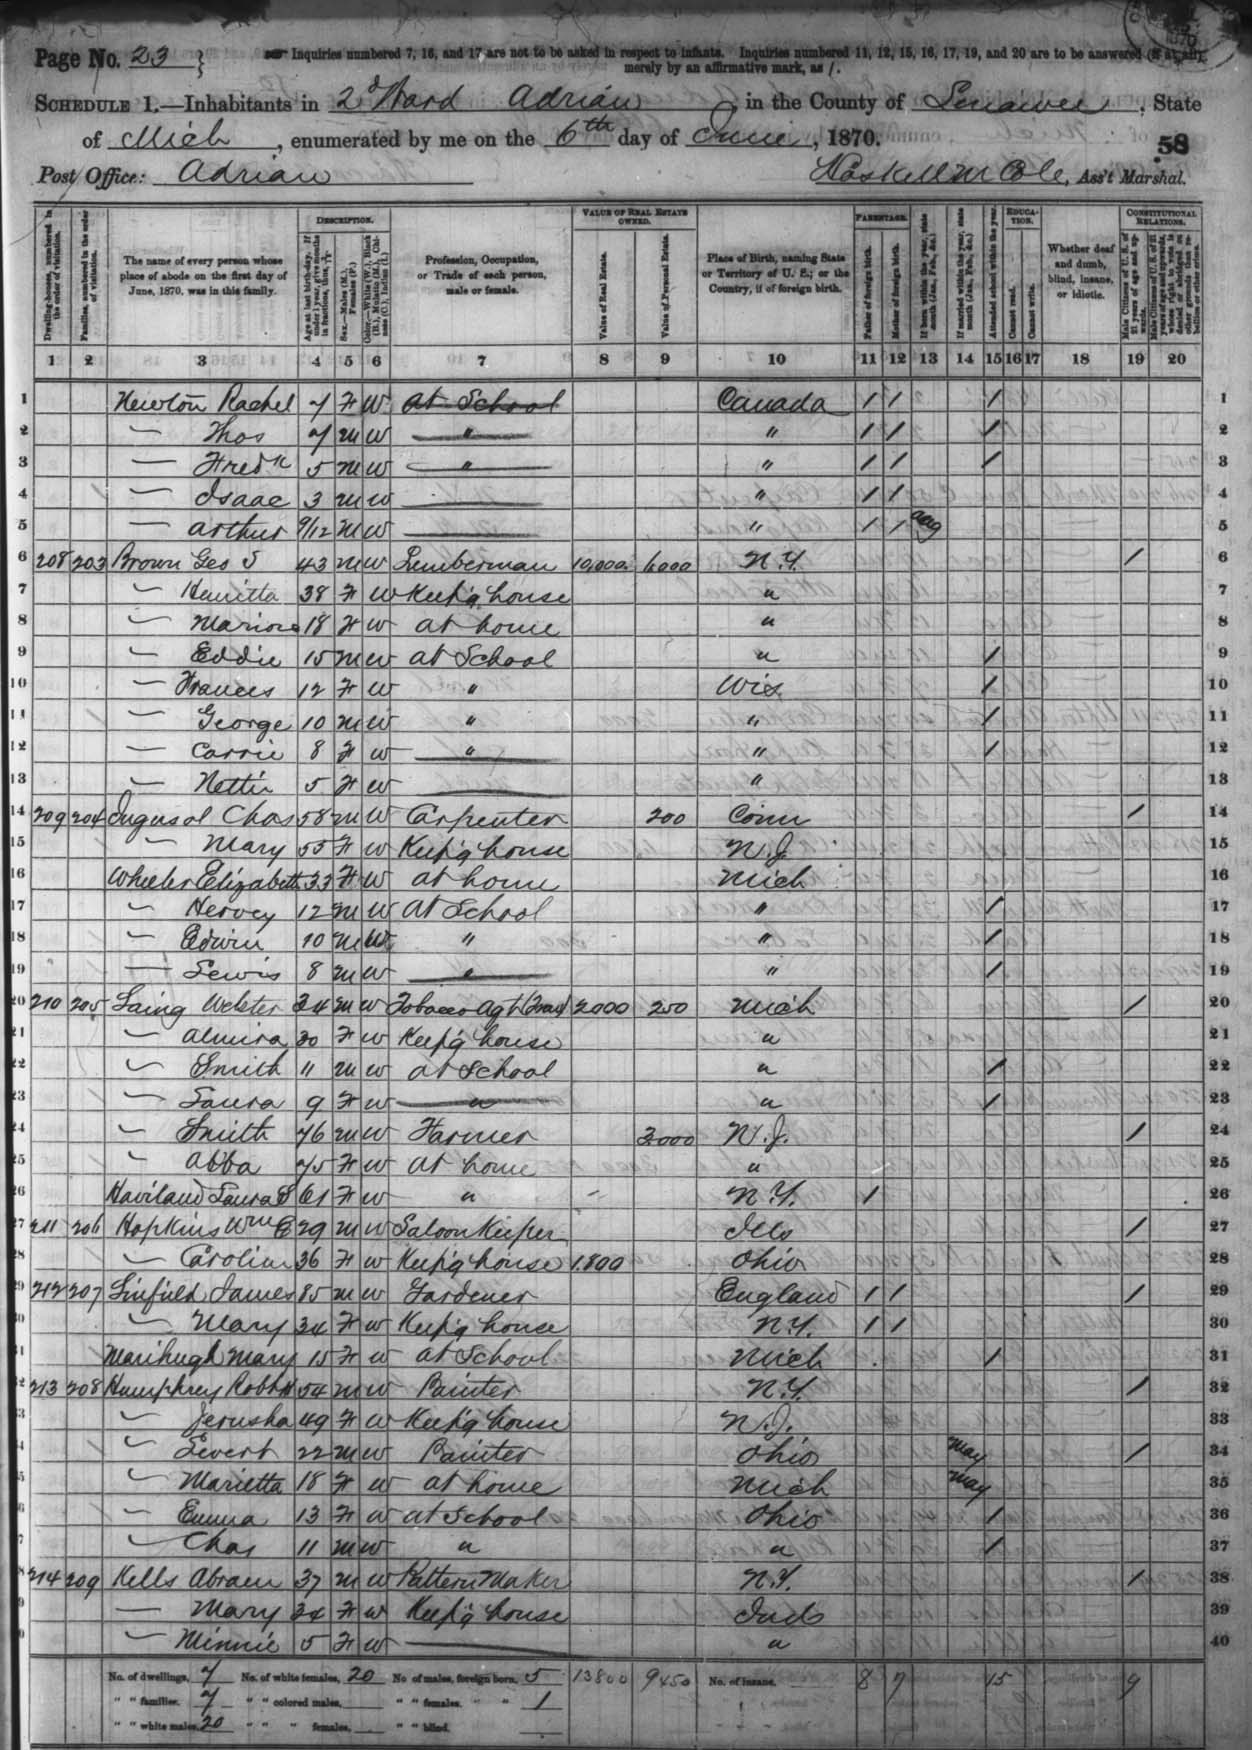 Page No. 23 } Inquiries numbered 7, 16, and 17 are not to be asked in respect to infants. Inquiries numbered 11, 12, 15, 16, 17, 19, and 20 are to be answered (if at all)
merely by an affirmative mark, as /.
SCHEDULE 1.—Inhabitants in 2d Ward Adrian, in the County of Lenawee, State
of Mich, enumerated by me on the 6th day of June, 1870.
58
Post Office: Adrian Haskell M Cole, Ass't Marshal.
DESCRIPTION. VALUE OF REAL ESTATE OWNED. PARENTAGE. EDUCATION. CONSTITUTIONAL RELATIONS.
Dwelling-houses, numbered in the order of visitation.
Families, numbered in the order of visitation.
The name of every person whose place of abode on the first day of June, 1870, was in this family.
Age at last birth-day. If under 1 year, give months in fractions, thus,
Sex.—Males (M.), Females (F.)
Color.—White (W.), Black (B.), Mulatto (M.), Chinese (C.), Indian (I.)
Profession, Occupation, or Trade of each person, male or female.
Value of Real Estate.
Value of Personal Estate.
Place of Birth, naming State or Territory of U. S.; or the Country, if of foreign birth.
Father of foreign birth.
Mother of foreign birth.
If born within the year, state month (Jan., Feb., &c.)
If married within the year, state month (Jan., Feb., &c.)
Attended school within the year.
Cannot read.
Cannot write.
Whether deaf and dumb, blind, insane, or idiotic.
Male Citizens of U. S. of 21 years of age and upwards.
Male Citizens of U. S. of 21 years of age and upwards, whose right to vote is denied or abridged on other grounds than rebellion or other crime.
1 2 3 4 5 6 7 8 9 10 11 12 13 14 15 16 17 18 19 20
1 Newton Rachel 7 F W At School Canada / / / 1
2 — Thos 7 M W " " / / / 2
3 — Fredk 5 M W " " / / / 3
4 — Isaac 3 M W " / / 4
5 — Arthur 9/12 M W " / / Aug 5
6 208 203 Brown Geo S 43 M W Lumberman 10,000 6000 N.Y. / 6
7 — Henritta 38 F W Keep'g house " 7
8 — 18 F W at home " 8
9 — Eddie 15 M W at School " / 9
10 — Frances 12 F W " Wis / 10
11 — George 10 M W " " / 11
12 — Carrie 8 F W " " / 12
13 — Nettie 5 F W " 13
14 209 204 Ingersol Chas 58 M W Carpenter 200 Conn / 14
15 — Mary 55 F W Keep'g house N.J. 15
16 Wheeler Elizabeth 33 F W at home Mich 16
17 — Hervey 12 M W At School " / 17
18 — Edwin 10 M W " " / 18
19 — Lewis 8 M W " " / 19
20 210 205 Laing Webster 34 M W Tobacco Agt (Trav) 2000 250 Mich / 20
21 — Almira 30 F W Keep'g house " 21
22 — Smith 11 M W at School " / 22
23 — Laura 9 F W " " / 23
24 — Smith 76 M W Farmer 3000 N.J. / 24
25 — Abba 75 F W at home " 25
26 Haviland Laura S 61 F W " N.Y. / 26
27 211 206 Hopkins Wm E 29 M W Saloon Keeper Ills / 27
28 — Caroline 36 F W Keep'g house 1,800 Ohio 28
29 212 207 Linfield James 85 M W Gardener England / / / 29
30 — Mary 34 F W Keep'g house N.Y. / / 30
31 Marihugh Mary 15 F W at School Mich / 31
32 213 208 Humphrey Robt H 54 M W Painter N.Y. / 32
33 — Jerusha 49 F W Keep'g house N.J. 33
34 — 22 M W Painter Ohio May / 34
35 — Marietta 18 F W at home Mich May 35
36 — Emma 13 F W at School Ohio / 36
37 — Chas 11 M W " " / 37
38 214 209 Kells Abram 37 M W Pattern Maker N.Y. / 38
39 — Mary 34 F W Keep'g house Inds 39
40 — Minnie 5 F W " 40
No. of dwellings, 7 No. of white females, 20 No. of males, foreign born, 5 13800 9450 No. of insane, 8 7 15 9
" " families, 7 " " colored males, " " females, " " 1
" " white males, 20 " " " females, " " blind,